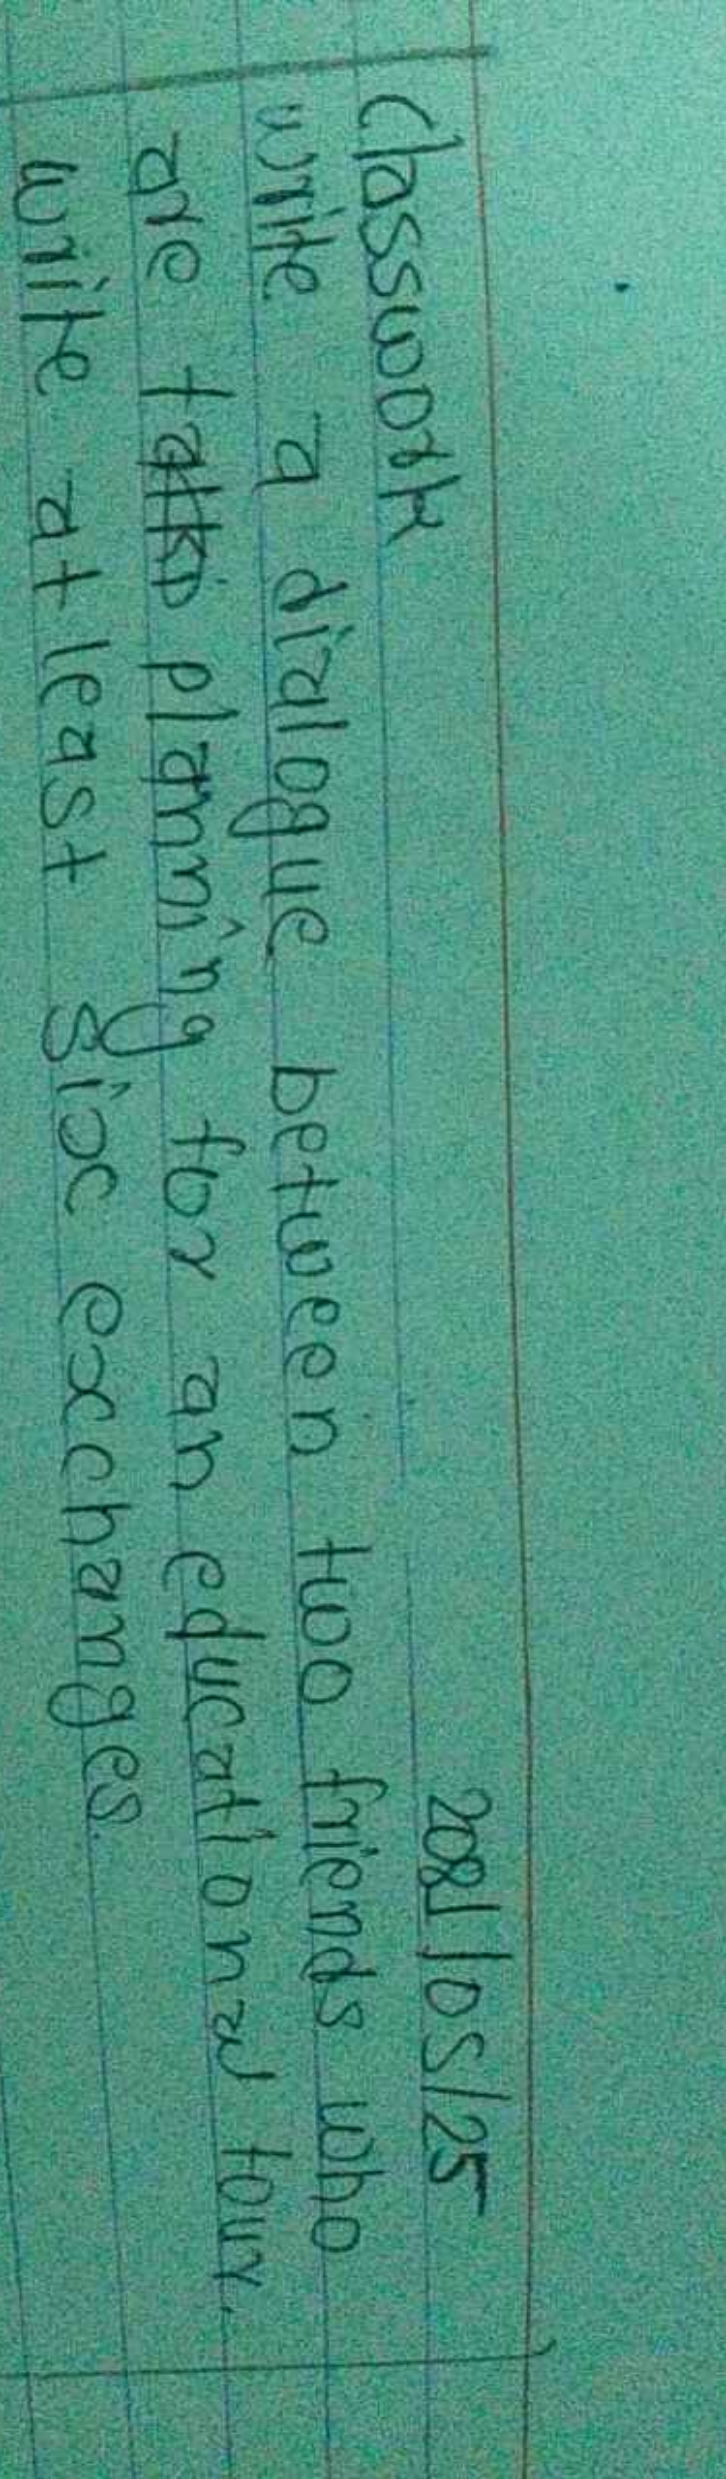 Classwork 2081/05/25
write a dialogue between two friends who
are planning for an educational tour.
write atleast six exchanges.